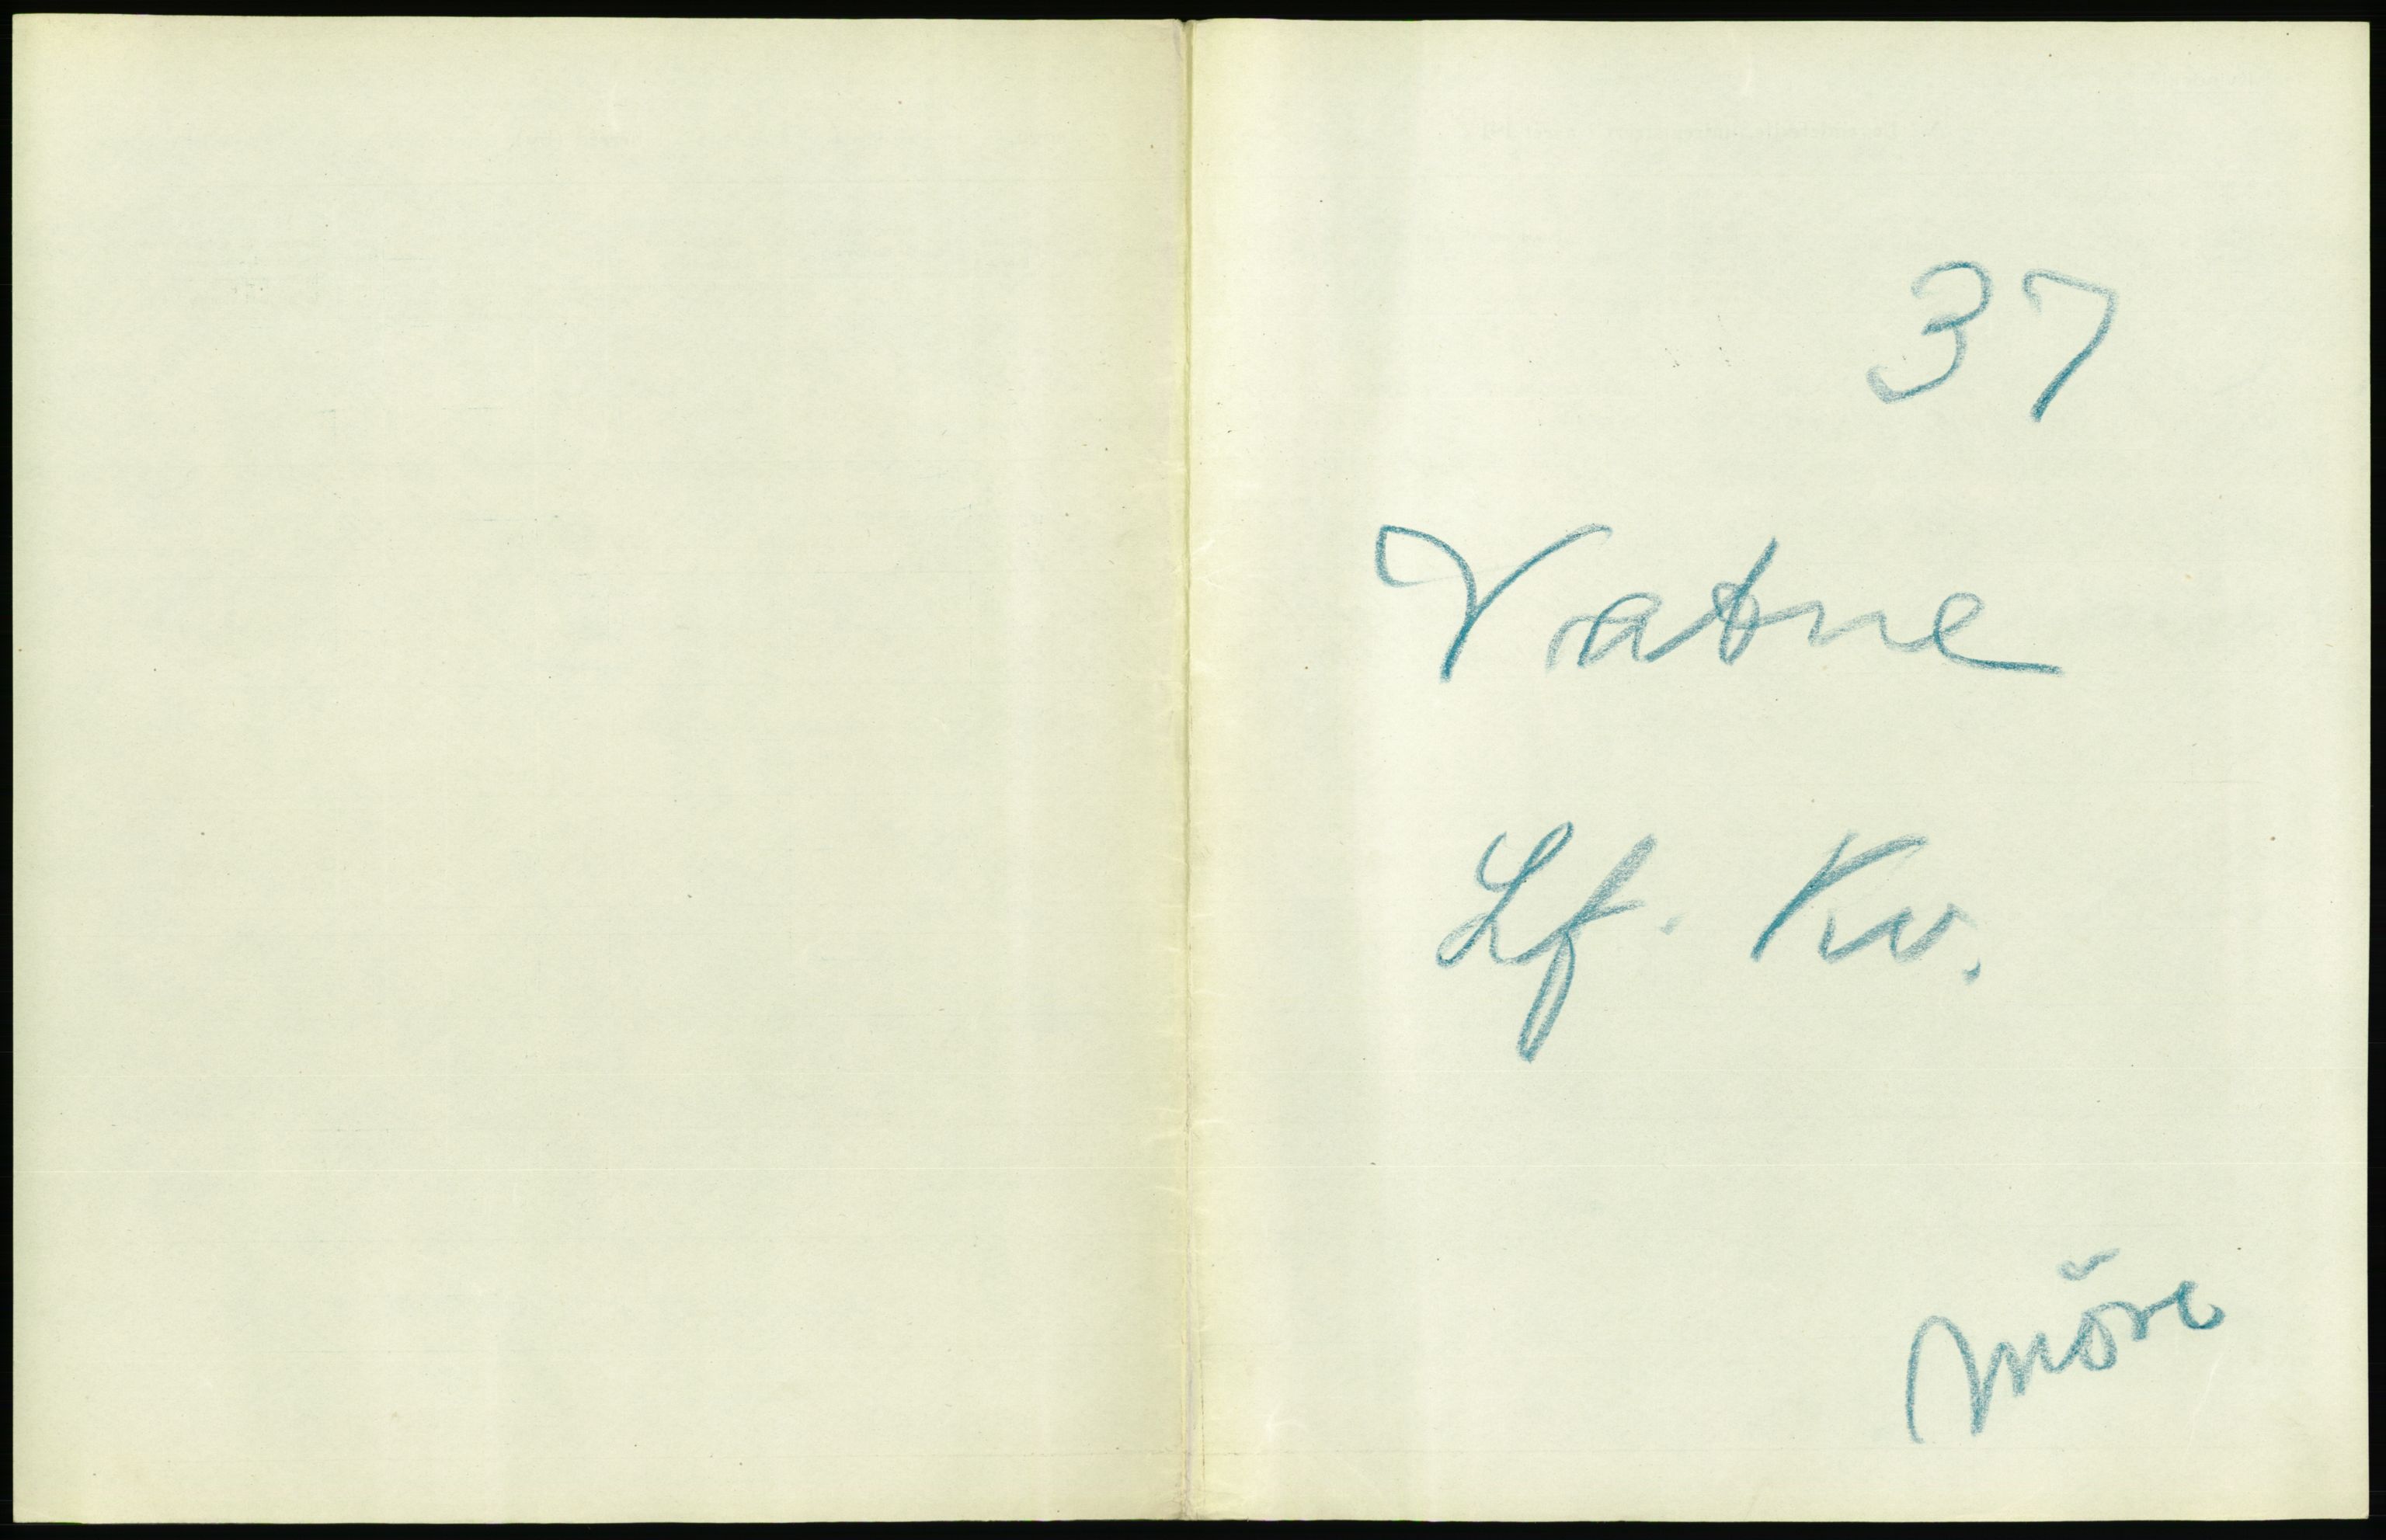 37
Vatne
Lf. Kv.
Möre